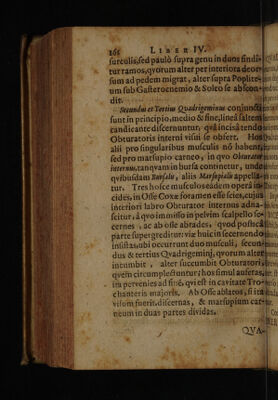 166 LIBER IV.
surculis, sed paulò supra genu in duos findi-
tur ramos, qvorum alter per interiora deor-
sum ad pedem migrat, alter supra Poplite-
um sub Gasterocnemio & Soleo se abscon-
dit.
Secundus et Tertius Quadrigeminus conjuncti
sunt in principio, medio & fine, lineâ saltem
candicante discernuntur, qvâ incisâ tendo
Obturatoris interni visui se obfert. Hos
alii pro singularibus musculis nõ habent,
sed pro marsupio carneo, in qvo Obturator
internus, tanqvam in bursa continetur, unde
qvibusdam Bursalis, aliis Marsupialis appella-
tur. Tres hosce musculos eâdem operâ in-
cides, in Osse Coxæ foramen esse scies, cujus
interiori labro Obturator internus adna-
scitur, â qvo immisso in pelvim scalpello se-
cernes, ac ab osse abrades, qvod posticâ
parte supergreditur: viæ huic in secernendo
insistas, ubi occurrunt duo musculi, secun-
dus & tertius Qvadrigeminj, qvorum alter
incumbit, alter succumbit Obturatori,
qvem circumplectuntur; hos simul auferas,
ita pervenies ad finẽ, qvi est in cavitate Tro-
chanteris majoris. Ab Osse ablatos, si ita
visum fuerit, discernas, & marsupium car-
neum in duas partes dividas.
QVA-